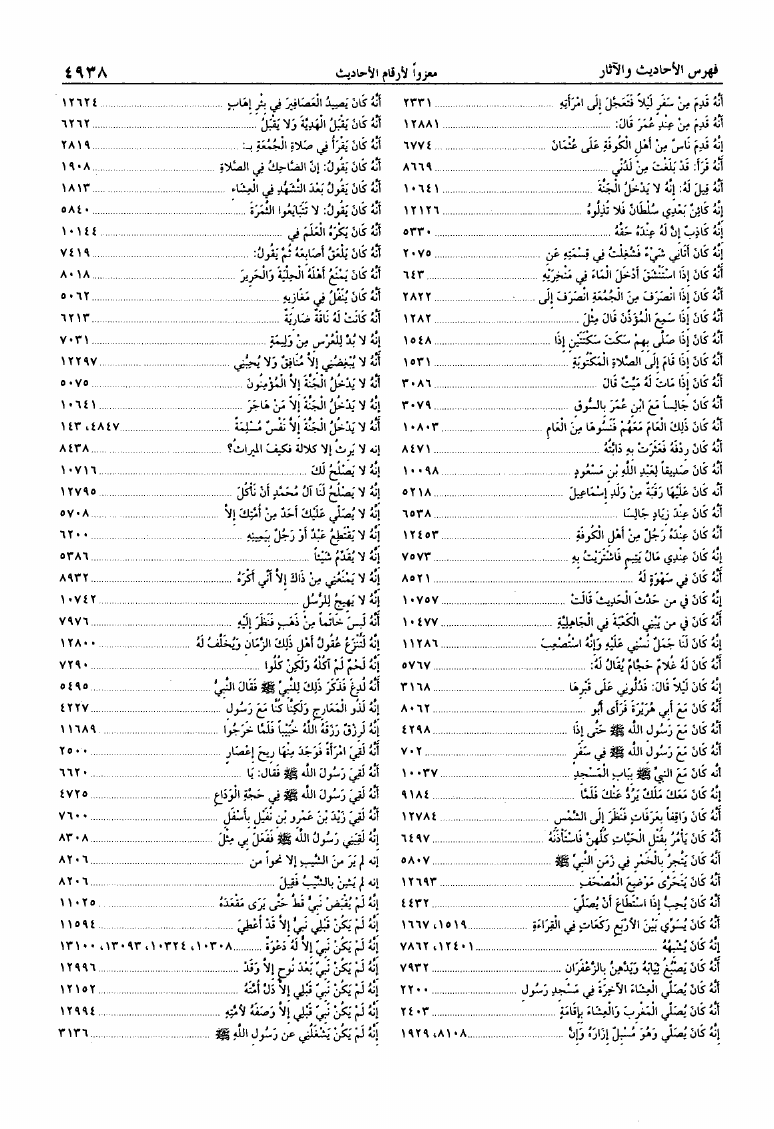 فهرس الأحاديث والآثار معزواً لأرقام الأحاديث ٤٩٣٨
أَنَّهُ قَدِمَ مِنْ سَفَرٍ لَيْلاً فَتَعَجَّلَ إِلَى امْرَأَتِهِ ٢٣٣١
أَنَّهُ قَدِمَ مِنْ عِنْدِ عُمَرَ قَالَ: ١٢٨٨١
إِنَّهُ قَدِمَ نَاسٌ مِنْ أَهْلِ الْكُوفَةِ عَلَى عُثْمَانَ ٦٧٧٤
أَنَّهُ قَرَأَ: قَدْ بَلَغْتَ مِنْ لَدُنِّي ٨٦٦٩
أَنَّهُ قِيلَ لَهُ: إِنَّهُ لَا يَدْخُلُ الْجَنَّةَ ١٠٦٤١
إِنَّهُ كَائِنٌ بَعْدِي سُلْطَانٌ فَلَا تُذِلُّوهُ ١٢١٢٦
إِنَّهُ كَاذِبٌ إِنَّ لَهُ عِنْدَهُ حَقَّهُ ٥٣٣٠
إِنَّهُ كَانَ أَتَانِي شَيْءٌ فَشُغِلْتُ فِي قِسْمَتِهِ عَنِ ٢٠٧٥
أَنَّهُ كَانَ إِذَا اسْتَنْشَقَ أَدْخَلَ الْمَاءَ فِي مَنْخِرَيْهِ ٦٤٣
أَنَّهُ كَانَ إِذَا انْصَرَفَ مِنَ الْجُمُعَةِ انْصَرَفَ إِلَى ٢٨٢٢
أَنَّهُ كَانَ إِذَا سَمِعَ الْمُؤَذِّنَ قَالَ مِثْلَ ١٢٨٢
أَنَّهُ كَانَ إِذَا صَلَّى بِهِمْ سَكَتَ سَكْتَتَيْنِ إِذَا ١٥٤٨
أَنَّهُ كَانَ إِذَا قَامَ إِلَى الصَّلَاةِ الْمَكْتُوبَةِ ١٥٣١
أَنَّهُ كَانَ إِذَا مَاتَ لَهُ مَيِّتٌ قَالَ ٣٠٨٦
أَنَّهُ كَانَ جَالِساً مَعَ ابْنِ عُمَرَ بِالسُّوقِ ٣٠٧٩
أَنَّهُ كَانَ ذَلِكَ الْعَامَ مَعَهُمْ فَنَسُوهَا مِنَ الْعَامِ ١٠٨٠٣
أَنَّهُ كَانَ رِدْفَهُ فَعَثَرَتْ بِهِ دَابَّتُهُ ٨٤٧١
أَنَّهُ كَانَ صَدِيقاً لِعَبْدِ اللَّهِ بْنِ مَسْعُودٍ ١٠٠٩٨
أنه كَانَ عَلَيْهَا رَقَبَةٌ مِنْ وَلَدِ إِسْمَاعِيلَ ٥٢١٨
أَنَّهُ كَانَ عِنْدَ زِيَادٍ جَالِسًا ٦٥٣٨
أَنَّهُ كَانَ عِنْدَهُ رَجُلٌ مِنْ أَهْلِ الْكُوفَةِ ١٢٤٥٣
إِنَّهُ كَانَ عِنْدِي مَالُ يَتِيمٍ فَاشْتَرَيْتُ بِهِ ٧٥٧٣
أَنَّهُ كَانَ فِي سَهْوَةٍ لَهُ ٨٥٢١
إِنَّهُ كَانَ فِي مَنْ حَدَّثَ الْحَدِيثَ قَالَتْ ١٠٧٥٧
أَنَّهُ كَانَ فِي مَنْ يَبْنِي الْكَعْبَةَ فِي الْجَاهِلِيَّةِ ١٠٤٧٧
إِنَّهُ كَانَ لَنَا جَمَلٌ نُسْنِي عَلَيْهِ وَإِنَّهُ اسْتُصْعِبَ ١١٢٨٦
أَنَّهُ كَانَ لَهُ غُلَامٌ حَجَّامٌ يُقَالُ لَهُ: ٥٧٦٧
إِنَّهُ كَانَ لَيْلاً قَالَ: فَدُلُّونِي عَلَى قَبْرِهَا ٣١٦٨
أَنَّهُ كَانَ مَعَ أَبِي هُرَيْرَةَ فَرَأَى أَبُو ٨٠٦٢
أَنَّهُ كَانَ مَعَ رَسُولِ اللَّهِ ﷺ حَتَّى إِذَا ٤٢٩٨
أَنَّهُ كَانَ مَعَ رَسُولِ اللَّهِ ﷺ فِي سَفَرٍ ٧٠٢
أنه كَانَ مَعَ النَّبِيِّ ﷺ بِبَابِ الْمَسْجِدِ ١٠٠٣٧
إِنَّهُ كَانَ مَعَكَ مَلَكٌ يَرُدُّ عَنْكَ فَلَمَّا ٩١٨٤
أَنَّهُ كَانَ وَاقِفاً بِعَرَفَاتٍ فَنَظَرَ إِلَى الشَّمْسِ ١٢٧٨٤
أَنَّهُ كَانَ يَأْمُرُ بِقَتْلِ الْحَيَّاتِ كُلِّهِنَّ فَاسْتَأْذَنَهُ ٦٤٩٧
أَنَّهُ كَانَ يَتْجُرُ بِالْخَمْرِ فِي زَمَنِ النَّبِيِّ ﷺ ٥٨٠٧
أَنَّهُ كَانَ يَتَحَرَّى مَوْضِعَ الْمُصْحَفِ ١٢٦٩٣
أَنَّهُ كَانَ يُحِبُّ إِذَا اسْتَطَاعَ أَنْ يُصَلِّيَ ٤٤٣٢
أَنَّهُ كَانَ يُسَوِّي بَيْنَ الْأَرْبَعِ رَكَعَاتٍ فِي الْقِرَاءَةِ ١٥١٩، ١٦٦٧
إِنَّهُ كَانَ يُشْبِهُهُ ١٢٤٠١، ٧٨٦٢
أَنَّهُ كَانَ يَصْبُغُ ثِيَابَهُ وَيَدَّهِنُ بِالزَّعْفَرَانِ ٧٩٣٢
أَنَّهُ كَانَ يُصَلِّي الْعِشَاءَ الْآخِرَةَ فِي مَسْجِدِ رَسُولِ ٢٢٠٠
أَنَّهُ كَانَ يُصَلِّي الْمَغْرِبَ وَالْعِشَاءَ بِإِقَامَةٍ ٢٤٠٣
إِنَّهُ كَانَ يُصَلِّي وَهُوَ مُسْبِلٌ إِزَارَهُ وَإِنَّ ٨١٠٨، ١٩٢٩
أَنَّهُ كَانَ يَصِيدُ الْعَصَافِيرَ فِي بِئْرِ إِهَابٍ ١٢٦٢٤
أَنَّهُ كَانَ يَقْبَلُ الْهَدِيَّةَ وَلَا يَقْبَلُ ٦٢٦٢
أَنَّهُ كَانَ يَقْرَأُ فِي صَلَاةِ الْجُمُعَةِ بِـ: ٢٨١٩
أَنَّهُ كَانَ يَقُولُ: إِنَّ الضَّاحِكَ فِي الصَّلَاةِ ١٩٠٨
أَنَّهُ كَانَ يَقُولُ بَعْدَ التَّشَهُّدِ فِي الْعِشَاءِ ١٨١٣
أَنَّهُ كَانَ يَقُولُ: لَا تَتَبَايَعُوا الثَّمَرَةَ ٥٨٤٠
أَنَّهُ كَانَ يَكْرَهُ الْعَلَمَ فِي ١٠١٤٤
أَنَّهُ كَانَ يَلْعَقُ أَصَابِعَهُ ثُمَّ يَقُولُ: ٧٤١٩
أَنَّهُ كَانَ يَمْنَعُ أَهْلَهُ الْحِلْيَةَ وَالْحَرِيرَ ٨٠١٨
أَنَّهُ كَانَ يُنَفِّلُ فِي مَغَازِيهِ ٥٠٦٢
أَنَّهُ كَانَتْ لَهُ نَاقَةٌ ضَارِيَةٌ ٦٢١٣
إِنَّهُ لَا بُدَّ لِلْعُرْسِ مِنْ وَلِيمَةٍ ٧٠٣١
أَنَّهُ لَا يُبْغِضُنِي إِلَّا مُنَافِقٌ وَلَا يُحِبُّنِي ١٢٢٩٧
أَنَّهُ لَا يَدْخُلُ الْجَنَّةَ إِلَّا الْمُؤْمِنُونَ ٥٠٧٥
إِنَّهُ لَا يَدْخُلُ الْجَنَّةَ إِلَّا مَنْ هَاجَرَ ١٠٦٤١
أَنَّهُ لَا يَدْخُلُ الْجَنَّةَ إِلَّا نَفْسٌ مُسْلِمَةٌ ٤٨٤٧، ١٤٣
إنه لا يَرِثُ إلا كلالة فكيف الميراث؟ ٨٤٣٨
إِنَّهُ لَا يَصْلُحُ لَكَ ١٠٧١٦
إِنَّهُ لَا يَصْلُحُ لَنَا آلَ مُحَمَّدٍ أَنْ نَأْكُلَ ١٢٧٩٥
إِنَّهُ لَا يُصَلِّي عَلَيْكَ أَحَدٌ مِنْ أُمَّتِكَ إِلَّا ٥٧٠٨
إِنَّهُ لَا يَقْتَطِعُ عَبْدٌ أَوْ رَجُلٌ بِيَمِينِهِ ٦٢٠٠
إِنَّهُ لَا يُقَدِّمُ شَيْئاً ٥٣٨٦
إِنَّهُ لَا يَمْنَعُنِي مِنْ ذَاكَ إِلَّا أَنِّي أَكْرَهُ ٨٩٣٢
إِنَّهُ لَا يَهِيجُ لِلرُّسُلِ ١٠٧٤٢
أَنَّهُ لَبِسَ خَاتَماً مِنْ ذَهَبٍ فَنَظَرَ إِلَيْهِ ٧٩٧٦
إِنَّهُ لَتُنْزَعُ عُقُولُ أَهْلِ ذَلِكَ الزَّمَانِ وَيُخَلَّفُ لَهُ ١٢٨٠٠
إِنَّهُ لَحْمٌ لَمْ آكُلْهُ وَلَكِنْ كُلُوا ٧٢٩٠
أَنَّهُ لُدِغَ فَذَكَرَ ذَلِكَ لِلنَّبِيِّ ﷺ فَقَالَ النَّبِيُّ ٥٤٩٥
إِنَّهُ لَذُو الْمَعَارِجِ وَلَكِنَّا كُنَّا مَعَ رَسُولِ ٤٢٢٧
إِنَّهُ لَرِزْقٌ رَزَقَهُ اللَّهُ خُبَيْباً فَلَمَّا خَرَجُوا ١١٦٨٩
أَنَّهُ لَقِيَ امْرَأَةً فَوَجَدَ مِنْهَا رِيحَ إِعْصَارٍ ٢٥٠٠
أَنَّهُ لَقِيَ رَسُولَ اللَّهِ ﷺ فَقَالَ: يَا ٦٦٢٠
أَنَّهُ لَقِيَ رَسُولَ اللَّهِ ﷺ فِي حَجَّةِ الْوَدَاعِ ٤٧٢٥
أَنَّهُ لَقِيَ زَيْدَ بْنَ عَمْرِو بْنِ نُفَيْلٍ بِأَسْفَلِ ٧٦٠٠
إِنَّهُ لَقِيَنِي رَسُولُ اللَّهِ ﷺ فَفَعَلَ بِي مِثْلَ ٨٣٠٨
إنه لم يَرَ مِنَ الشَّيْبِ إلا نحواً من ٨٢٠٦
إنه لم يَشِنْ بِالشَّيْبِ فَقِيلَ ٨٢٠٦
إِنَّهُ لَمْ يُقْبَضْ نَبِيٌّ قَطُّ حَتَّى يَرَى مَقْعَدَهُ ١١٠٢٥
إِنَّهُ لَمْ يَكُنْ قَبْلِي نَبِيٌّ إِلَّا قَدْ أُعْطِيَ ١١٥٩٤
إِنَّهُ لَمْ يَكُنْ نَبِيٌّ إِلَّا لَهُ دَعْوَةٌ ١٠٣٠٨، ١٠٣٢٤، ١٣٠٩٣، ١٣١٠٠
إِنَّهُ لَمْ يَكُنْ نَبِيٌّ بَعْدَ نُوحٍ إِلَّا وَقَدْ ١٢٩٩٦
إِنَّهُ لَمْ يَكُنْ نَبِيٌّ قَبْلِي إِلَّا دَلَّ أُمَّتَهُ ١٢١٥٢
إِنَّهُ لَمْ يَكُنْ نَبِيٌّ قَبْلِي إِلَّا وَصَفَهُ لِأُمَّتِهِ ١٢٩٩٤
إِنَّهُ لَمْ يَكُنْ يَشْغَلُنِي عن رَسُولِ اللَّهِ ﷺ ٣١٣٦